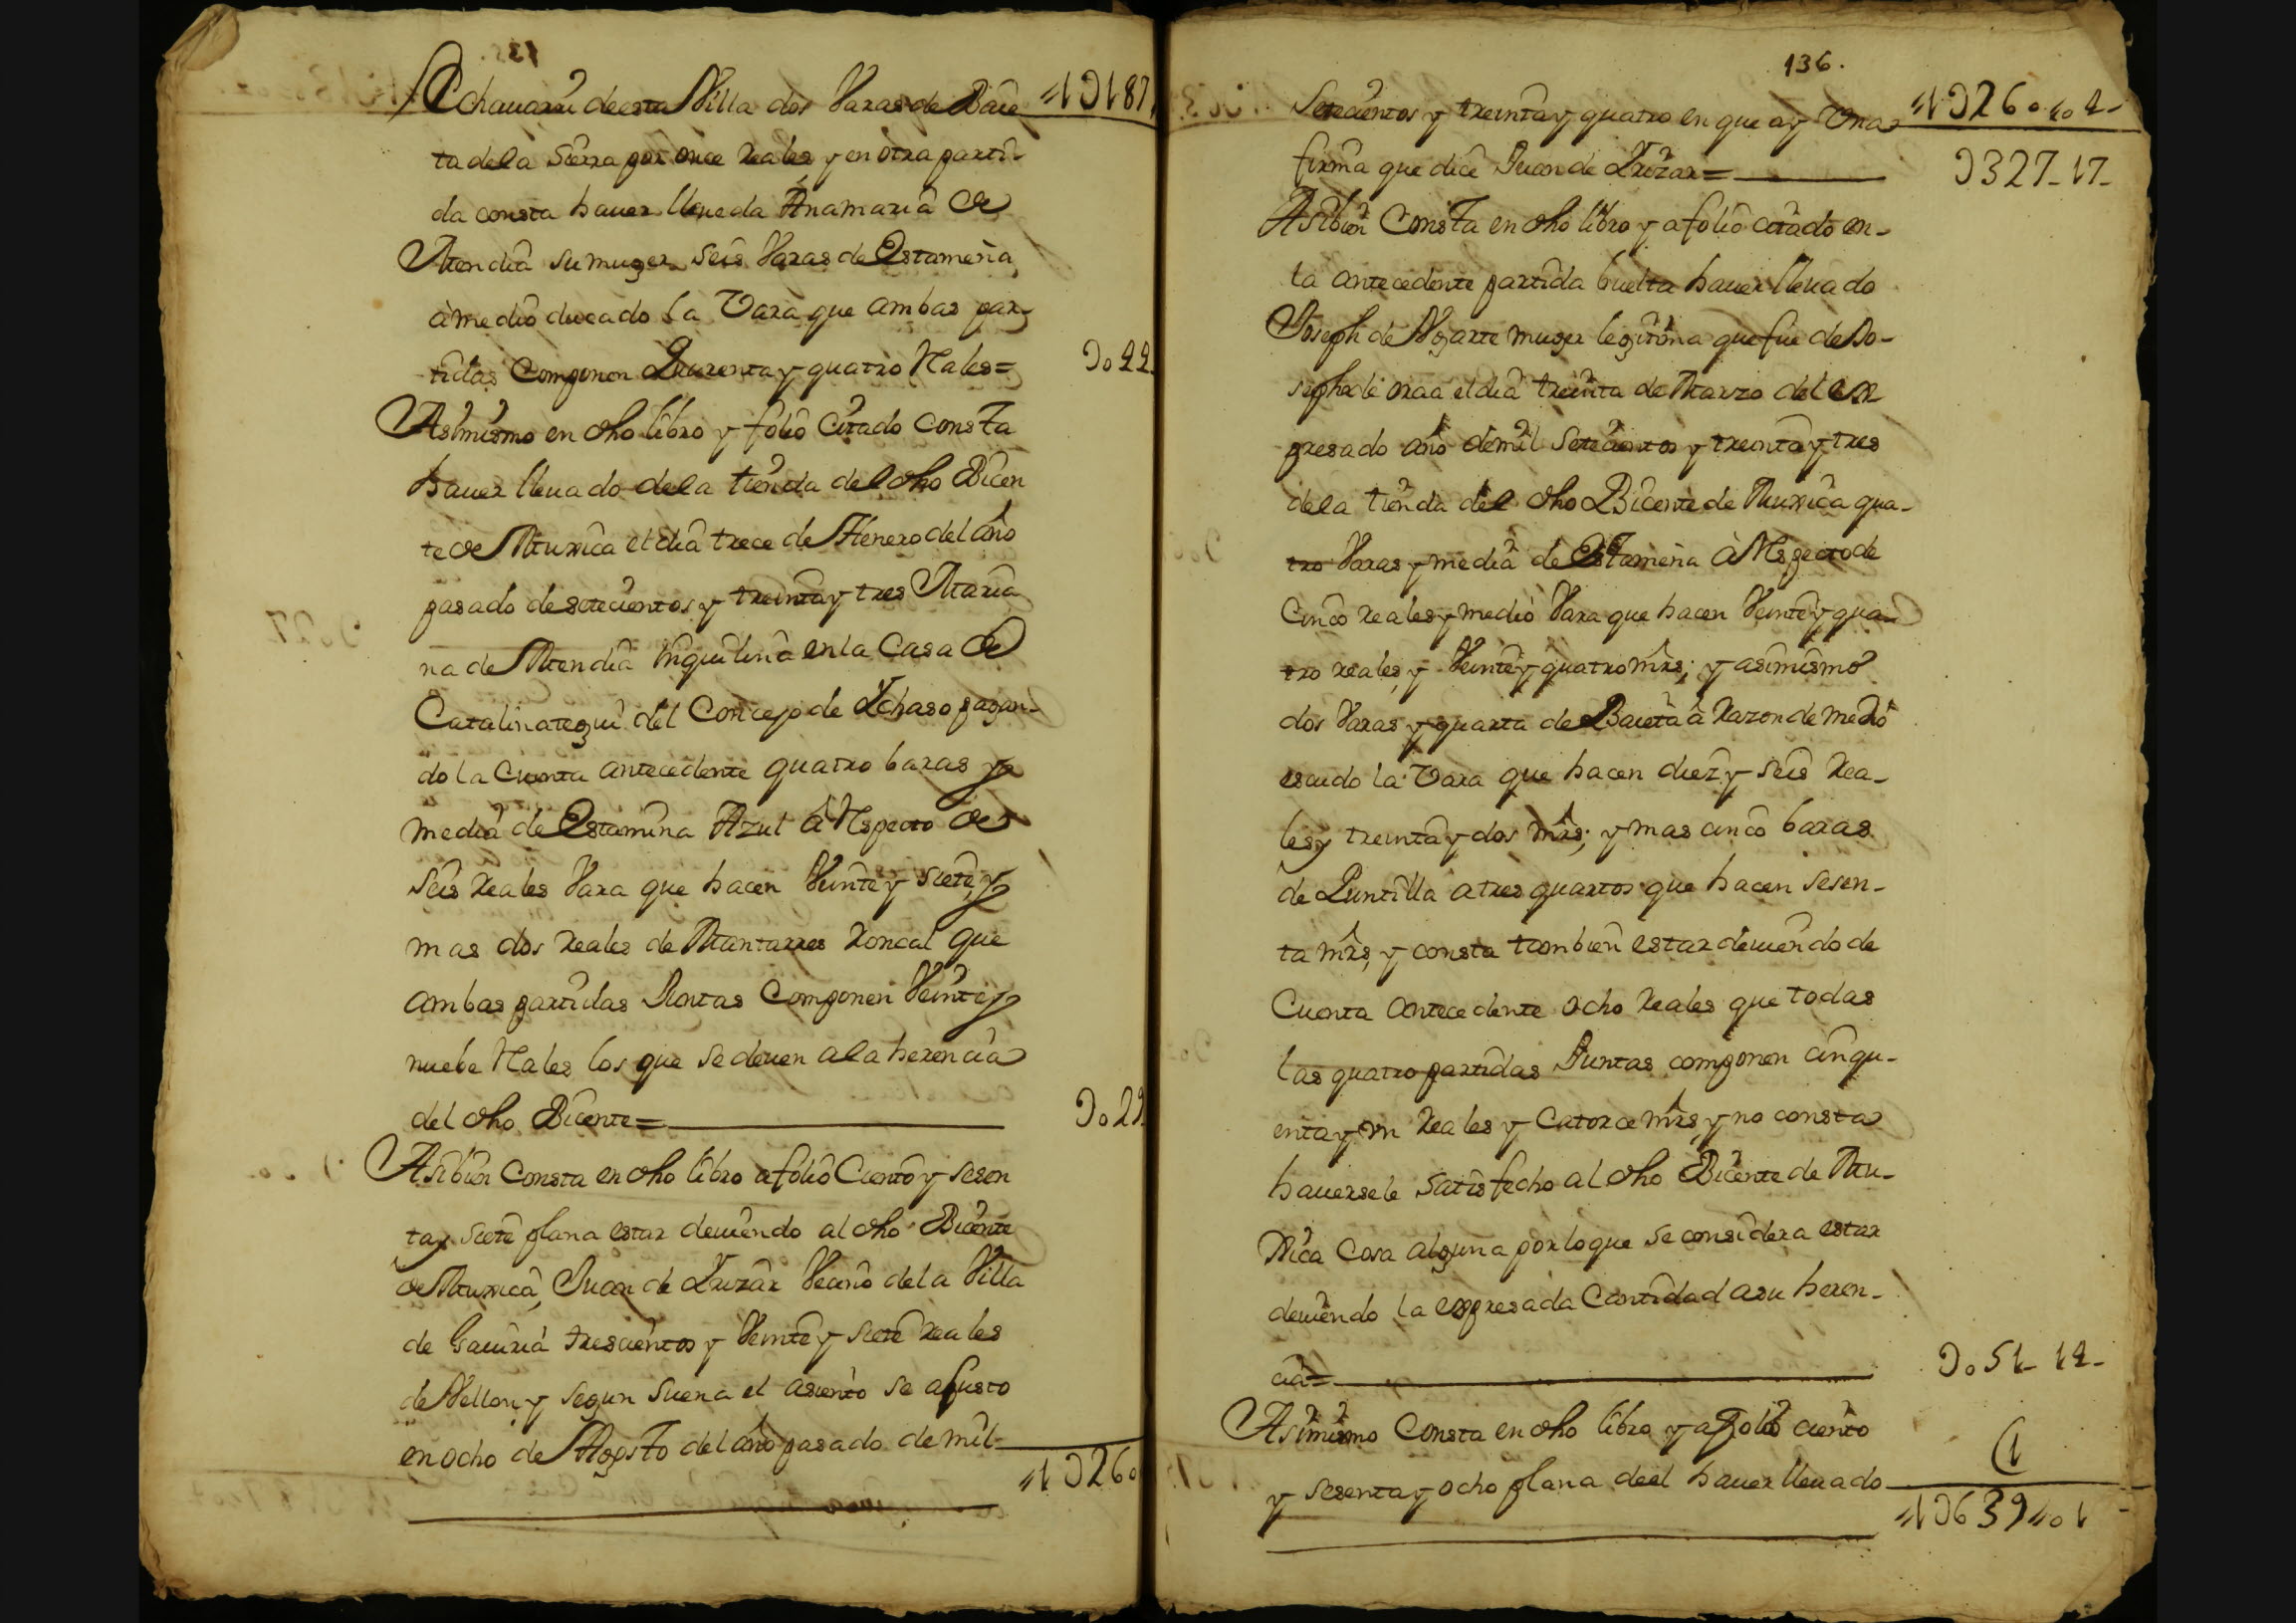 Echauarri de esta Villa dos Varas de Baie
11Ↄ187
ta de la Sierra por once reales, y en otra parti-
da consta hauer lleueda Anamaria de
Mendia su muger seis Varas de Estameña
à medio ducado la Vara que ambas par-
tidas Componen Quarenta y quatro Rales=
Ↄo44
Asimismo en dho libro y folio Citado Consta
hauer lleuado de la tienda del dho Bicen
te de Muxica el dia trece de Henero del año
pasado de setecientos y treinta y tres Maria
na de Mendia Inquilina en la Casa de
Catalinategui del Concejo de Ychaso pagan-
do la Cuenta antecedente quatro baras y
media de Estamina Azul à Respecto de
Seis reales Vara que hacen Veinte y siete, y
mas dos reales de Mantarres Roncal que
ambas partidas Iuntas Componen Veinte y
nuebe Rales los que se deuen a la herencia
del dho Bicente=
Ↄo29
Asibien Consta en dho libro a folio Ciento y sesen
ta y siete plana estar deuiendo al dho Bicente
de Muxica, Juan de Yrizar Vecino de la Villa
de Gauiria trescientos y Veinte y siete reales
de Vellon, y segun suena el asiento se ajusto
en ocho de Agosto del año pasado de mil
11Ↄ260
136.
Setecientos y treinta y quatro en que ay Una
11Ↄ260 "04-
firma que dice Juan de Yrizar=
Ↄ327-17-
Asibien Consta en dho libro y a folio citado en-
la antecedente partida buelta hauer lleuado
Joseph de Vgarte muger legitima que fue de Jo-
seph de oraa el dia treinta de Marzo del ex
presado año de mil setecientos y treinta y tres
de la tienda del dho Bicente de Muxica qua-
tro Varas y media de Estameña à Respecto de
Cinco reales y medio Vara que hacen Veinte y qua-
tro reales, y Veinte y quatro mrs; y asimismo
dos Varas y quarta de Baieta à razon de medio
escudo la Vara que hacen diez y seis rea-
les y treinta y dos mrs; y mas cinco baras
de Puntilla a tres quartos que hacen sesen-
ta mrs, y consta tambien estar deuiendo de
Cuenta antecedente ocho reales que todas
las quatro partidas Juntas componen cinqu-
enta y un reales y Catorce mrs, y no consta
hauersele satisfecho al dho Bicente de Mu-
xica Cosa alguna por lo que se considera estar
deuiendo la expresada Cantidad a su heren-
cia=
Ↄo51-14-
Asimismo Consta en dho libro y a folio ciento
(1
y sesenta y ocho plana de el hauer lleuado
11Ↄ639"01